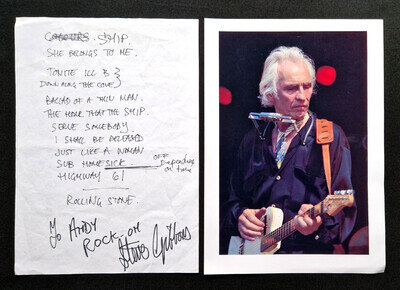 COLOURS. SHIP.
SHE BELONGS TO ME.
TONITE ILL B
DOWN ALONG THE COVE
BALLAD OF A THIN MAN.
THE HOUR THAT THE SHIP.
SERVE SOMEBODY
I SHALL BE RELEASED
JUST LIKE A WOMAN
SUB HOME SICK OFF Depending on time
HIGHWAY 61
ROLLING STONE.
To ANDY
ROCK-ON
Steve Gibbons